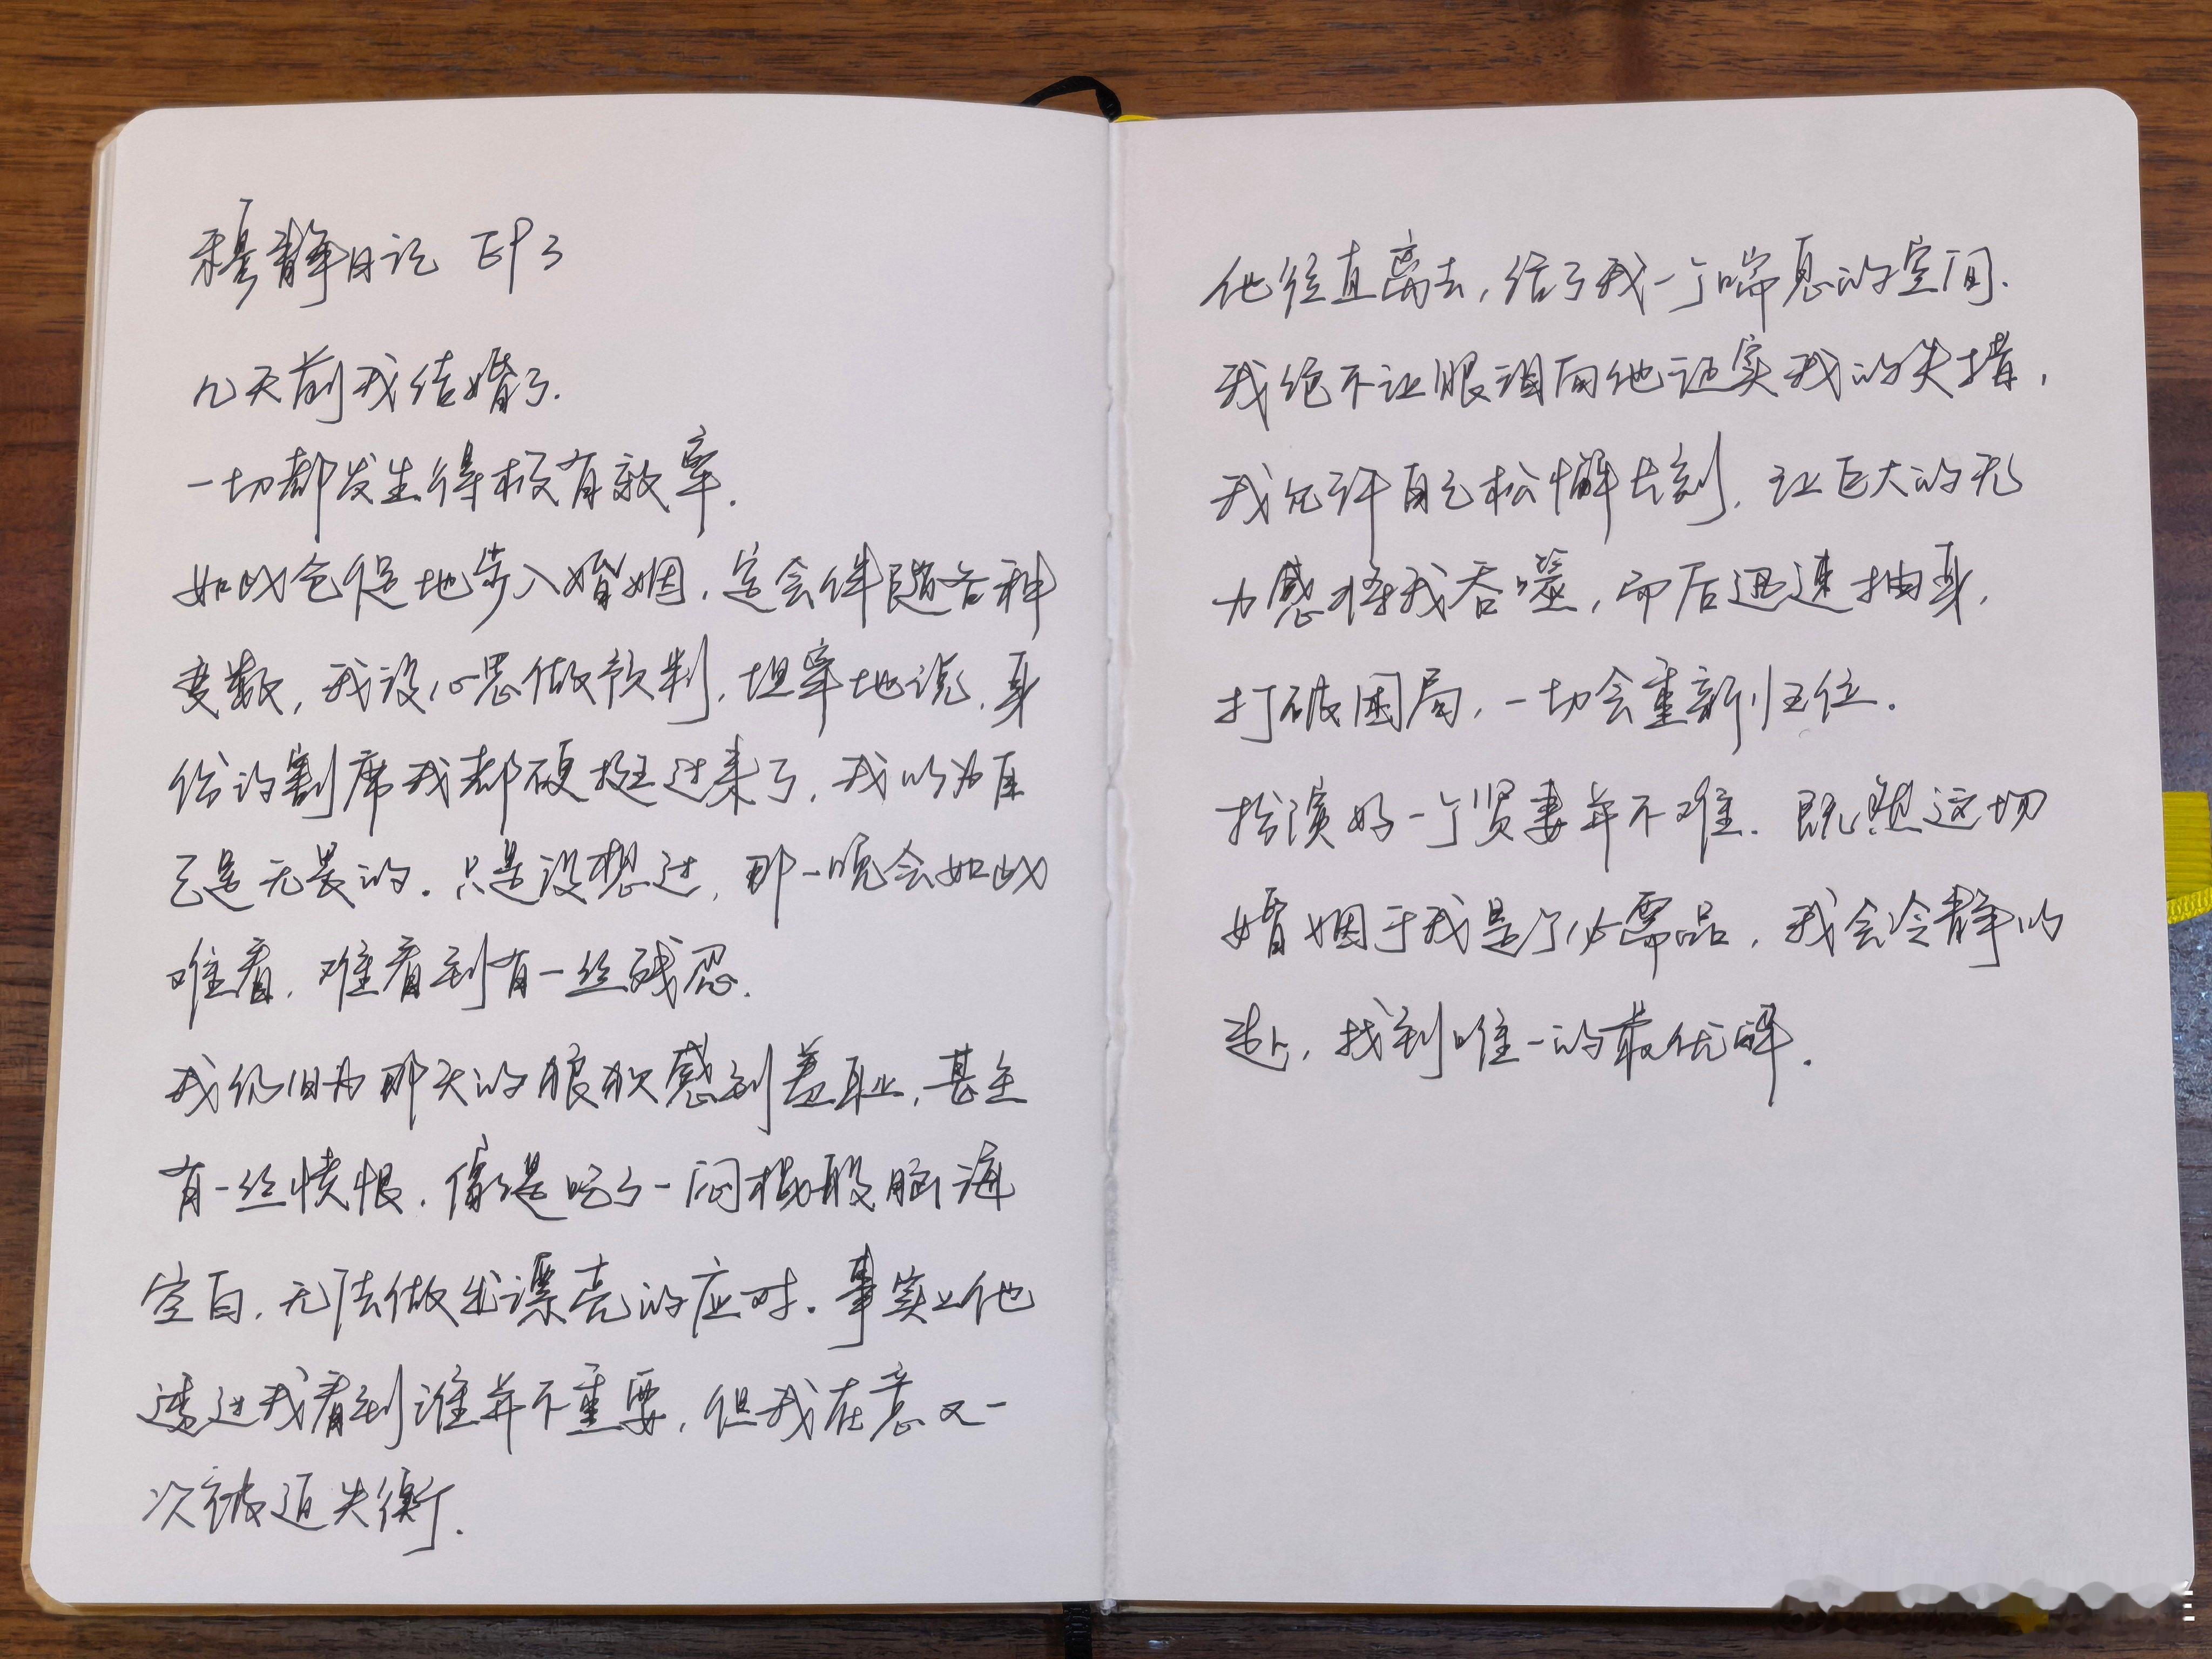 穆静日记 EP3
几天前我结婚了.
一切都发生得极有效率.
如此仓促地步入婚姻,定会伴随各种
变数,我没心思做预判,坦率地说,身
份的割席我都硬挺过来了,我以为自
己是无畏的.只是没想过,那一晚会如此
难看,难看到有一丝残忍.
我仍旧为那天的狼狈感到羞耻,甚至
有一丝愤恨.像是吃了一闷棍般脑海
空白,无法做出漂亮的应对.事实上他
透过我看到谁并不重要,但我在意又一
次被迫失衡.
他径直离去,给了我一个喘息的空间.
我绝不让眼泪向他证实我的失措,
我允许自己松懈片刻,让巨大的无
力感将我吞噬,而后迅速抽身,
打破困局,一切会重新归位.
扮演好一个贤妻并不难.既然这场
婚姻于我是个必需品,我会冷静的
找到唯一的最优解.